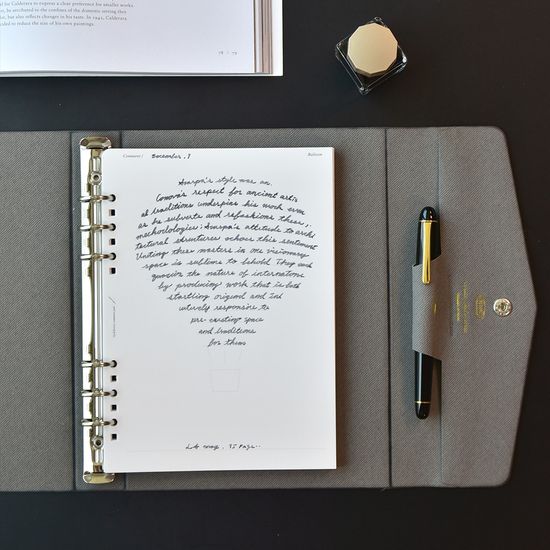 l for Calderara to express a clear preference for smaller works.
be attributed to the confines of the domestic setting then
but also reflects changes in his taste. In 1941, Calderara
cided to reduce the size of his own paintings.
Comment / December. 7
Balloon
Scarpa's style was an.
Canova's respect for ancient artis
al traditions underpins his work even
as he subverts and refashions these
methodologies; Scarpa's attitude to archi
tectural structures echoes this sentiment
Uniting these masters in one visionary
space is sublime to behold. They each
the nature of
by producing work that is both
startling original and
responsive to
pre-existing space
and traditions
for them